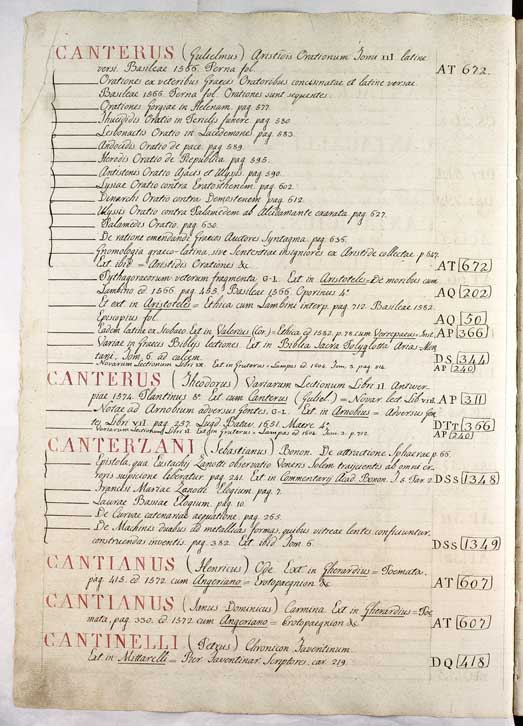 CANTERUS (Gulielmus) Aristidis Orationum Tomi III latine
versi. Basileae 1566. Perna fol. AT 672
Orationes ex veteribus Graecis Oratoribus concinnatae et latine versae.
Basileae 1566. Perna fol. Orationes sunt sequentes.
Orationes Gorgiae in Helenam pag. 577.
Thucydidis Oratio in Periclis funere pag. 580
Lesbonactis Oratio in Lacedemone pag. 583.
Andocidis Oratio de pace pag. 589.
Herodis Oratio de Republica pag. 595.
Antistenis Oratio Ajacis et Ulyssis pag. 590.
Lysiae Oratio contra Eratosthenem pag. 602.
Dinarchi Oratio contra Demostenem pag. 612.
Ulyssis Oratio contra Palamedem ab Alcidamante exarata pag. 627.
Palamedis Oratio pag. 630.
De ratione emendandi Graecos Auctores Syntagma pag. 635.
Gnomologia graeco-latina, sive Sententiae insigniores ex Aristide collectae p. 647.
Ext. ibid. = Aristidis Orationes &c. AT 672
Pythagoraeorum veterum fragmenta G-L. Ext in Aristoteles = De moribus cum
Lambino, ed 1566. pag. 453. Basileae 1566. Oporinus 4º AQ 202
Et ext in Aristotelis = Ethica cum Lambini interp. pag. 712. Basileae 1582.
Episcopius fol. AQ 50
Eadem latine ex Stobaeo. Ext in Valerius (Cor.) = Ethica ed 1582. p. 78. cum AP 366
Variae in Graecis Biblijs lectiones. Ext in Biblia Sacra Polyglotta Arias Mon
tani, Tom. 6. ad calcem. DS 344
Novarum Lectionum Libri IX. Ext in Gruterus = Lampas ed 1604. Tom. 3. pag. AP 240
CANTERUS (Theodorus) Variarum Lectionum Libri II. Antwer
piae 1574. Plantinus 8º Et cum Canterus (Guliel.) = Novar. lect Lib VIII AP 311
Notae ad Arnobium adversus Gentes. G-L. Ext. in Arnobius = Adversus Gen
tes, Libri VII. pag. 237. Lugd. Batav. 1651. Maere 4º DTt 366
Variarum Lectionum Libri II. Ext in Gruterus = Lampas ed 1604. Tom. 3. p. 712. AP 240
CANTERZANI (Sebastianus) Bonon. De attractione Sphaerae p. 66.
Epistola, qua Eustachij Zanotti observatio Veneris Solem trajicentis ab omni er
roris suspicione liberatur pag. 251. Ext. in Commentarij Acad Bonon. T. 5 Par 2 DSs 1348
Francisci Mariae Zanotti Elogium pag. 7.
Laurae Bassiae Elogium. pag. 10.
De Curvae catenariae aequatione pag. 265.
De Machinis duabus ad metallicas formas, quibus vitreae lentes conficiuntur,
construendas inventis. pag. 382. Ext. ibid Tom 6. DSs 1349
CANTIANUS (Henricus) Ode. Ext in Gherardius = Poemata.
pag. 413. ed 1572 cum Angeriano = Erotopaegnion &c AT 607
CANTIANUS (Janus Dominicus) Carmina. Ext in Gherardius = Poe
mata, pag. 330. ed 1572 cum Angeriano = Erotopaegnion &c. AT 607
CANTINELLI (Petrus) Chronicon Faventinum.
Ext. in Mittarelli = Rer. Faventinar. Scriptores. car. 219. DQ 418